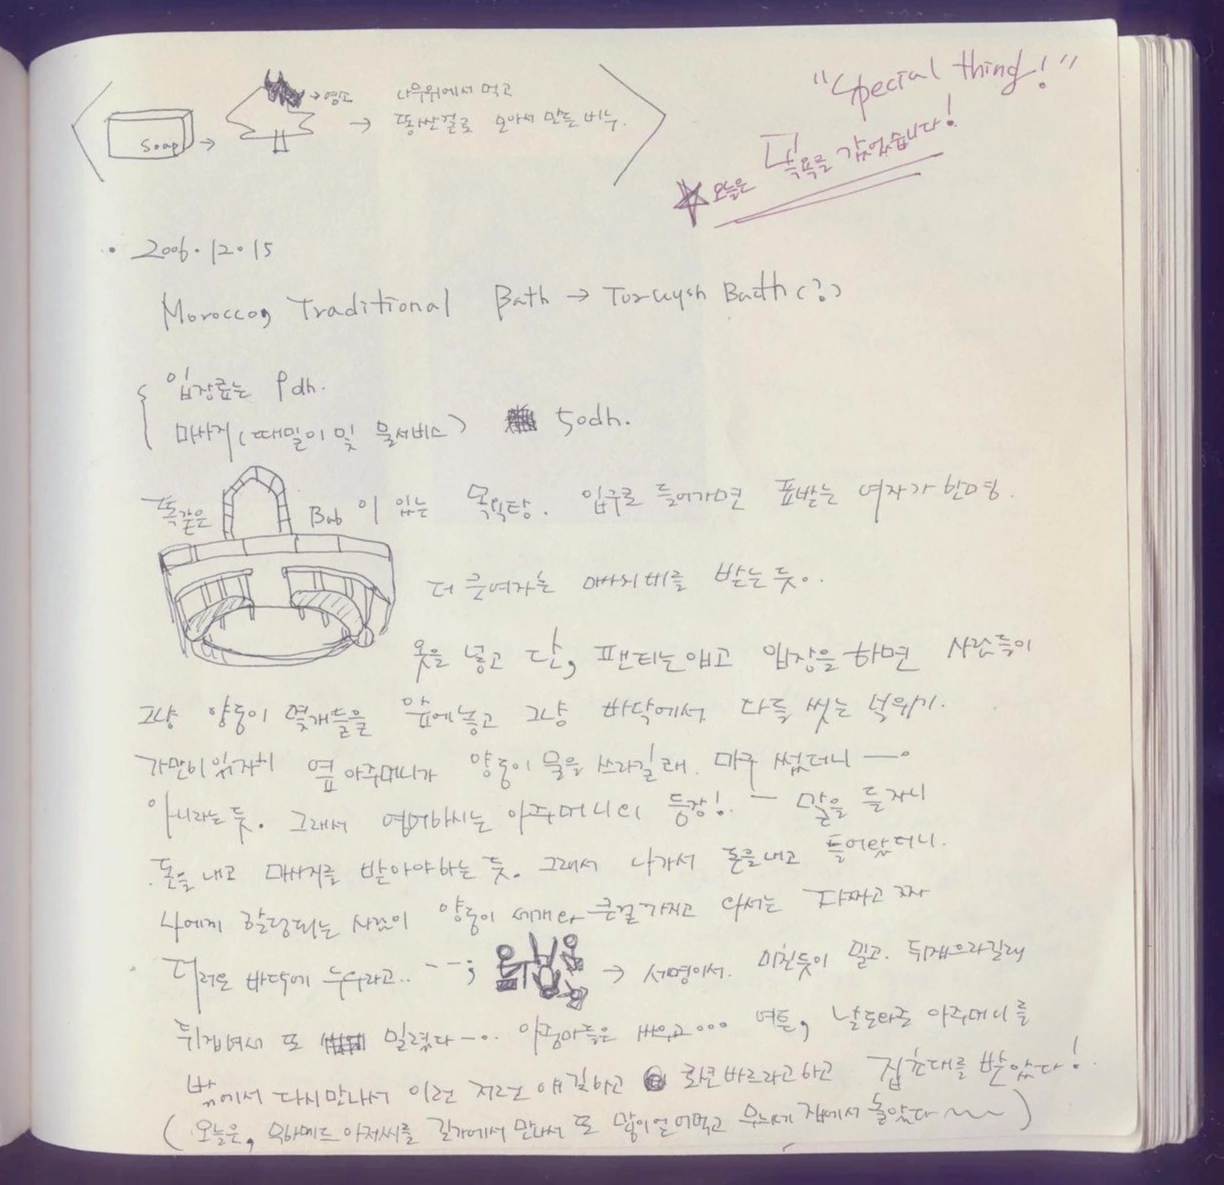 Soap → → 염소 → 나무위에서 먹고
똥싼걸로 모아서 만든 비누.
"Special thing!"
☆오늘은 목욕를 갔었습니다!
• 2006.12.15
Moroccoo, Traditional Bath → Toruysh Bath (?)
입장료는 9dh.
마사지 (때밀이 및 물서비스) 50dh.
똑같은 Bab 이 있는 목욕탕. 입구로 들어가면 표받는 여자가 한명.
더 큰여자는 마사지비를 받는 듯.
옷을 넣고 단, 팬티는입고 입장을 하면 사람들이
그냥 양동이 몇개들을 앞에놓고 그냥 바닥에서 다들 씻는 분위기.
가만이 있자니 옆 아주머니가 양동이 물을 쓰라길래. 마구 썼더니 ㅡ.
아니라는 듯. 그래서 영어하시는 아주머니의 등장! ㅡ 말을 듣자니
돈을 내고 마사지를 받아야하는 듯. 그래서 나가서 돈을내고 들어왔더니.
나에게 할당되는 사람이 양동이 세개와 큰걸가지고 와서는 다짜고짜
더러운 바닥에 누우라고.. ㅡㅡ; → 서명이서. 미친듯이 밀고. 뒤집으라길래
뒤집어서 또 밀렸다 ㅡ.. 아줌마들은 싸우고... 여튼, 날도와준 아주머니를
밖에서 다시만나서 이런 저런 얘길하고 화면바르라고하고 집초대를 받았다!
(오늘은, 모하메드 아저씨를 길가에서 만나서 또 많이얻어먹고 우느세 집에서 놀았다 ~~)